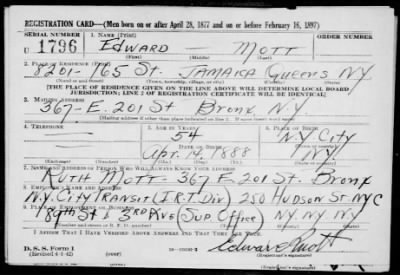 REGISTRATION CARD—(Men born on or after April 28, 1877 and on or before February 16, 1897)
SERIAL NUMBER 1. NAME (Print) ORDER NUMBER
U 1796 EDWARD — MOTT
(First) (Middle) (Last)
2. PLACE OF RESIDENCE (Print)
8201-165 St. JAMAICA QUEENS NY
(Number and street) (Town, township, village, or city) (County) (State)
[THE PLACE OF RESIDENCE GIVEN ON THE LINE ABOVE WILL DETERMINE LOCAL BOARD
JURISDICTION; LINE 2 OF REGISTRATION CERTIFICATE WILL BE IDENTICAL]
3. MAILING ADDRESS
367-E. 201 St Bronx N.Y
[Mailing address if other than place indicated on line 2. If same insert word same]
4. TELEPHONE 5. AGE IN YEARS 6. PLACE OF BIRTH
54 N.Y. City
DATE OF BIRTH
Apr. 14, 1888 N.Y.
(Exchange) (Number) (Mo.) (Day) (Yr.) (State or country)
7. NAME AND ADDRESS OF PERSON WHO WILL ALWAYS KNOW YOUR ADDRESS
RUTH MOTT - 367 E. 201 St. Bronx
8. EMPLOYER'S NAME AND ADDRESS
N.Y. City TRANSIT (I.R.T. Div) 250 HUDSON St NYC
9. PLACE OF EMPLOYMENT OR BUSINESS
180th St & 3rd Ave (Sup. Office) N.Y. N.Y. N.Y.
(Number and street or R. F. D. number) (Town) (County) (State)
I AFFIRM THAT I HAVE VERIFIED ABOVE ANSWERS AND THAT THEY ARE TRUE.
D. S. S. Form 1
(Revised 4-1-42) (over) Edward Mott
(Registrant's signature)